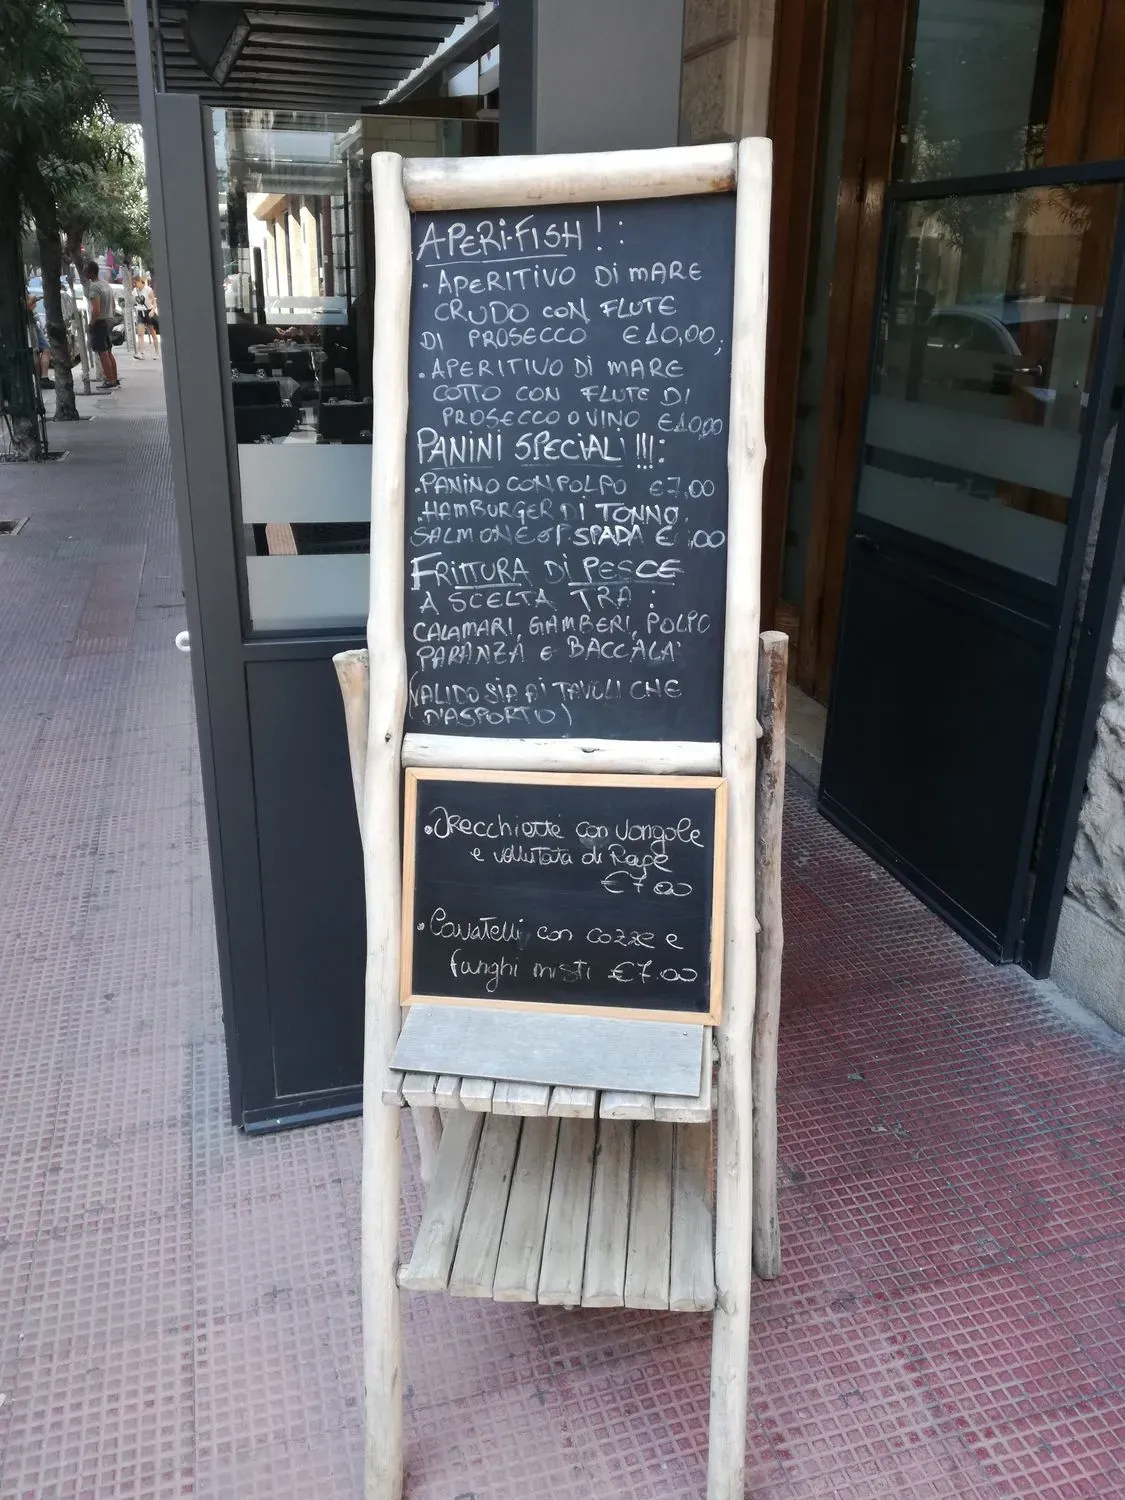 APERI-FISH!:
· APERITIVO DI MARE
CRUDO CON FLUTE
DI PROSECCO €10,00;
· APERITIVO DI MARE
COTTO CON FLUTE DI
PROSECCO O VINO €10,00
PANINI SPECIALI!!!:
· PANINO CON POLPO €7,00
· HAMBURGER DI TONNO,
SALMONE o P. SPADA € ,00
FRITTURA DI PESCE
A SCELTA TRA:
CALAMARI, GAMBERI, POLPO
PARANZA E BACCALA'
(VALIDO SIA AI TAVOLI CHE
D'ASPORTO)
· Orecchiette con vongole
e vellutata di Rape
€7.00
· Cavatelli con cozze e
funghi misti €7.00